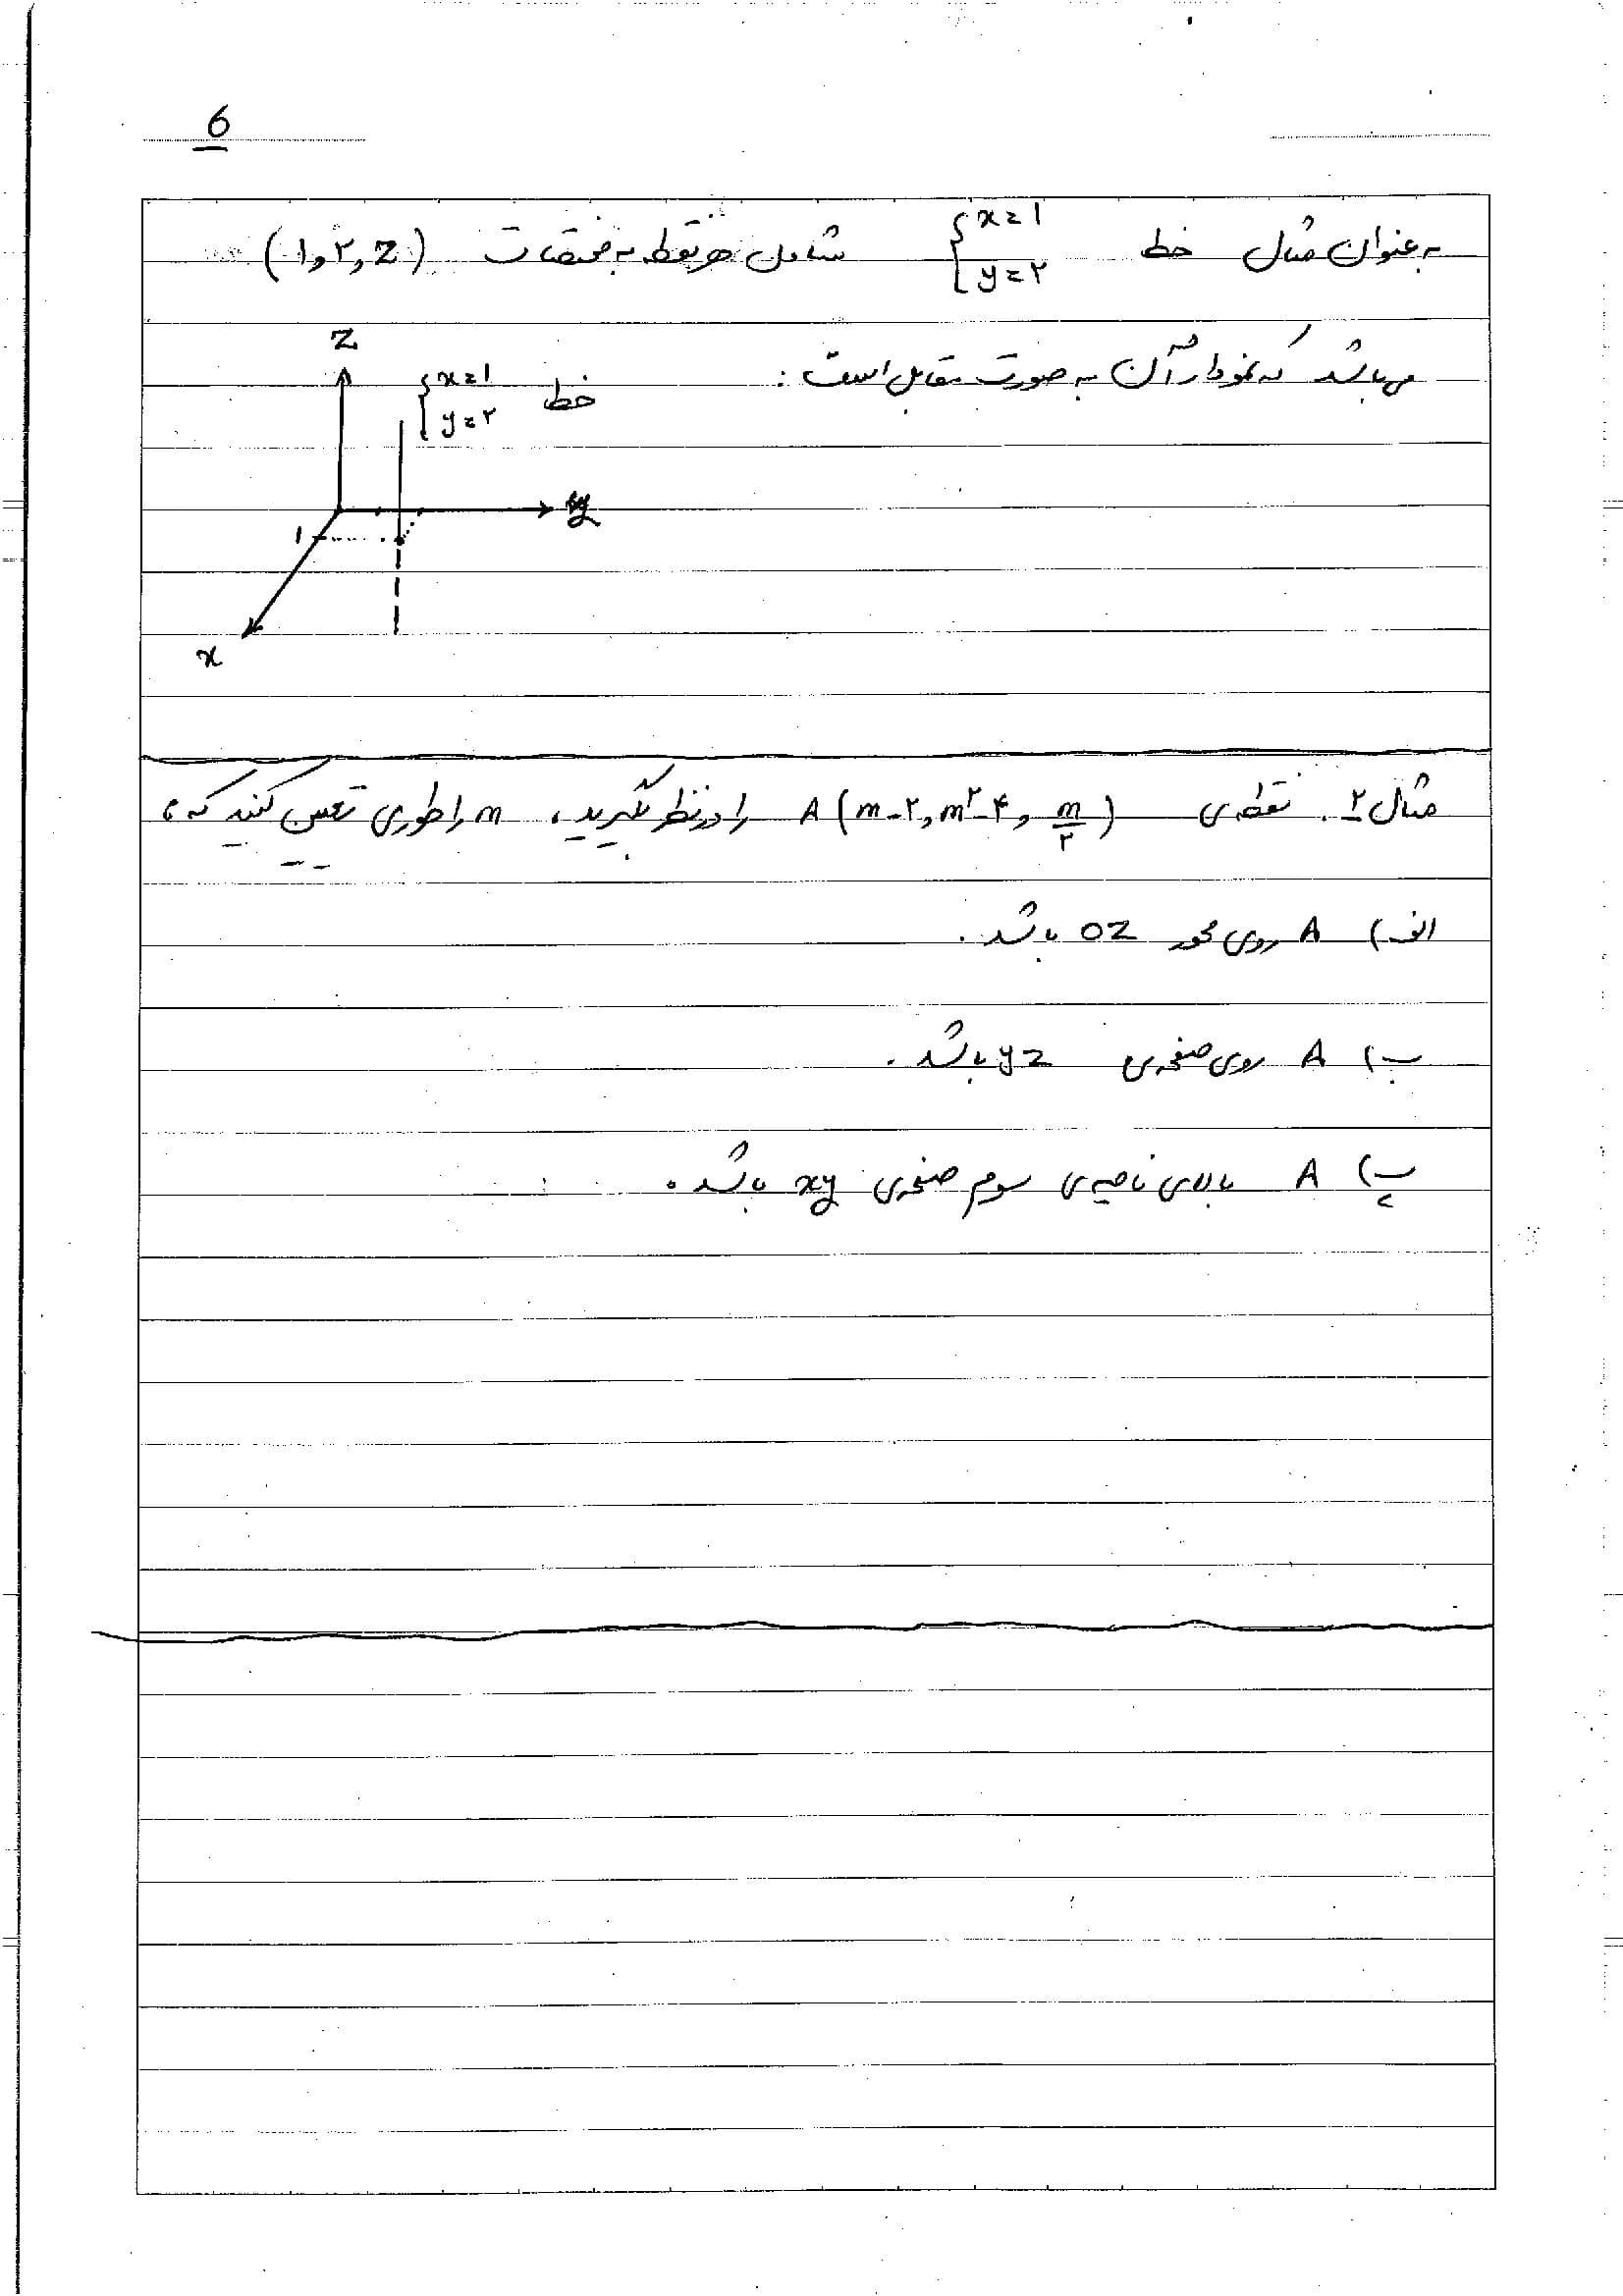 6
به عنوان مثال خط { x=1 , y=۲ شامل هر نقطه به مختصات (۱,۲,z)
می باشد که نمودار آن به صورت مقابل است :
z
خط { x=1 , y=۲
y
۱
x
مثال ۲. نقطه‌ی A(m-۲, m²-۴, m/۲) را در نظر بگیرید، m را طوری تعیین کنید که،
الف) A روی محور OZ باشد.
ب) A روی صفحه‌ی yz باشد.
پ) A بالای ناحیه‌ی سوم صفحه‌ی xy باشد.